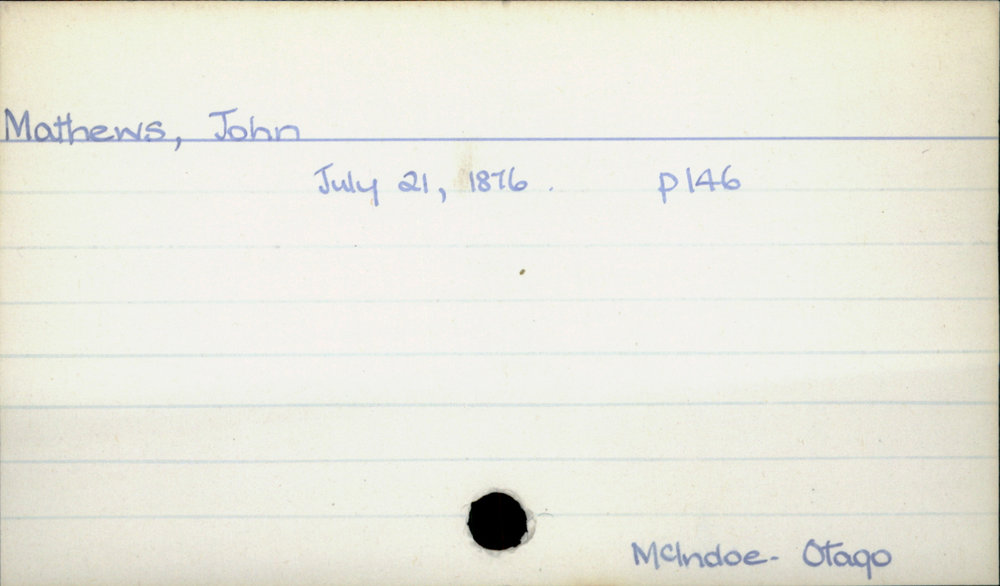 Mathews, John
July 21, 1876. p146
McIndoe- Otago